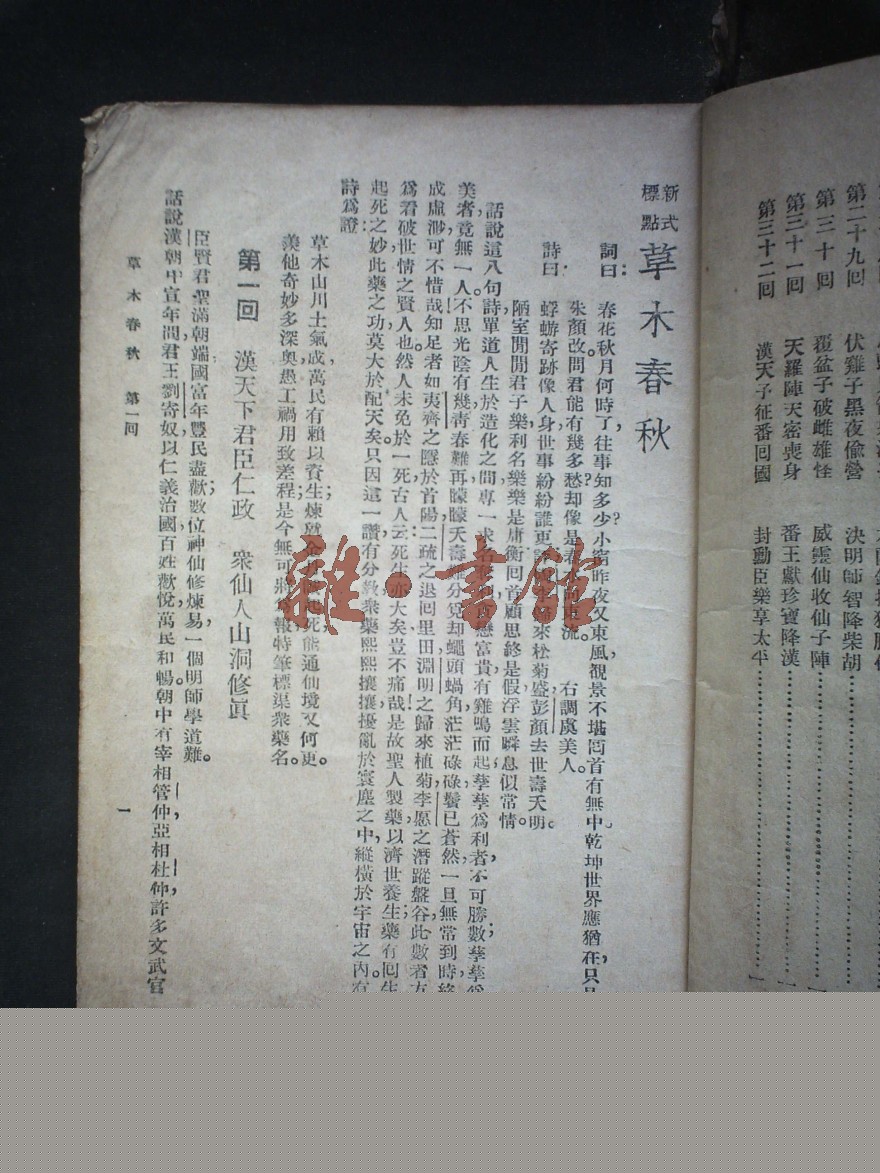 第二十九回 伏雞子黑夜偷營 決明師智降柴胡
第三十回 覆盆子破雌雄怪 威靈仙收仙子陣
第三十一回 天羅陣天密喪身 番王獻珍寶降漢
第三十二回 漢天子征番回國 封勳臣樂享太平
新式標點 草木春秋
詞曰：春花秋月何時了，往事知多少？小窗昨夜又東風，覩景不堪回首有無中，乾坤世界應猶在，只
朱顏改，問君能有幾多愁？却像是春 流。 右調虞美人。
詩曰：蜉蝣寄跡像人身，世事紛紛誰更 來松菊盛，彭顏去世壽夭明。
陋室閒閒君子樂，利名樂樂是庸衡，回首顧思終是假，浮雲瞬息似常情。
話說這八句詩，單道人生於造化之間，專一求名 戀富貴，有雞鳴而起，孳孳爲利者，不可勝數；孳孳
美者，竟無一人。不思光陰有幾，靑春難再，矇矇夭壽難分，兒却蠅頭蝸角，茫茫碌碌，鬢已蒼然，一旦無常到時，
成虛渺，可不惜哉！知足者如夷齊之隱於首陽，二疏之退回里田，淵明之歸來植菊，李愿之潛蹤盤谷，此數者
爲看破世情之賢人也。然人未免於一死，古人云：死生亦大矣，豈不痛哉！是故聖人製藥以濟世養生；藥有回生
起死之妙，此藥之功，莫大於配天矣。只因這一讚，有分教：衆藥熙熙攘攘，擾亂於寰塵之中，縱橫於宇宙之內。有
詩爲證：
草木山川土氣成，萬民有賴以資生；煉就金丹 起死，能通仙境又何更。
羨他奇妙多深奧，愚工禍用致差程；是今無可將 報，特筆標渠衆藥名。
第一回 漢天下君臣仁政 衆仙人山洞修眞
臣賢君聖滿朝端，國富年豐民盡歡；數位神仙修煉易，一個明師學道難。
話說漢朝中宣年間，君王劉寄奴，以仁義治國，百姓歡悅，萬民和暢。朝中有宰相管仲，亞相杜仲，許多文武官
草木春秋 第一回
一
雜·書館